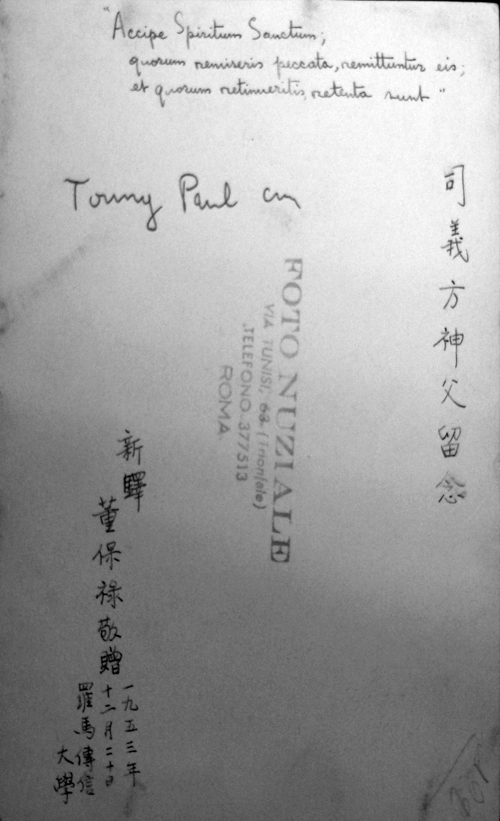 "Accipe Spiritum Sanctum;
quorum remiseris peccata, remittuntur eis;
et quorum retinueritis, retenta sunt"
Toung Paul cm
司義方神父留念
FOTO NUZIALE
VIA TUNISI, 63 (Trionfale)
TELEFONO 377513
ROMA
新鐸
董保祿敬贈
一九五三年
十二月二十日
羅馬傳信
大學